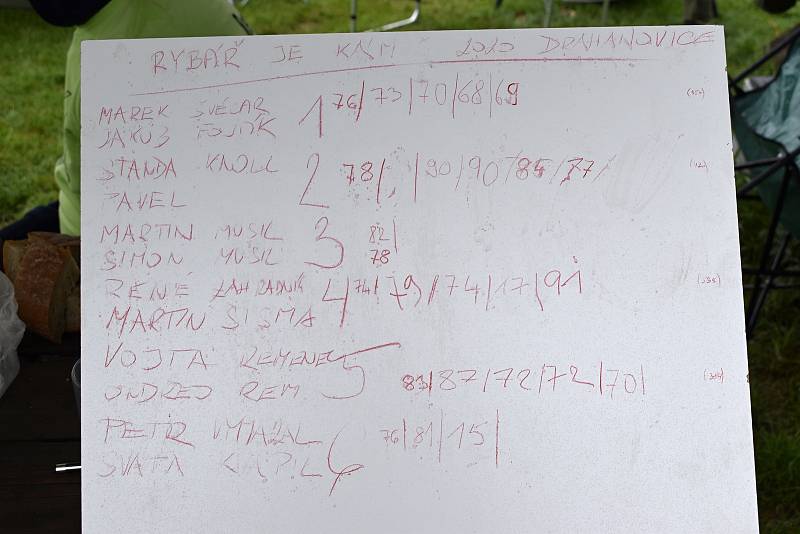 RYBÁŘ JE 2020 DRAHANOVICE
MAREK ŠVÉCAR 1 76/73/70/68/69
JAKUB FOJTÍK
STANDA KNOLL 2 78/ /90/90/85/77/
PAVEL
MARTIN MUSIL 3 82
SIMON MUSIL 78
RENÉ ZAHRADNÍK 4 74/79/74/17/91
MARTIN SISMA
VOJTA REMENEC 5
ONDREJ REM 83/87/72/72/70/
PETR 6 76/81/15/
SVATA